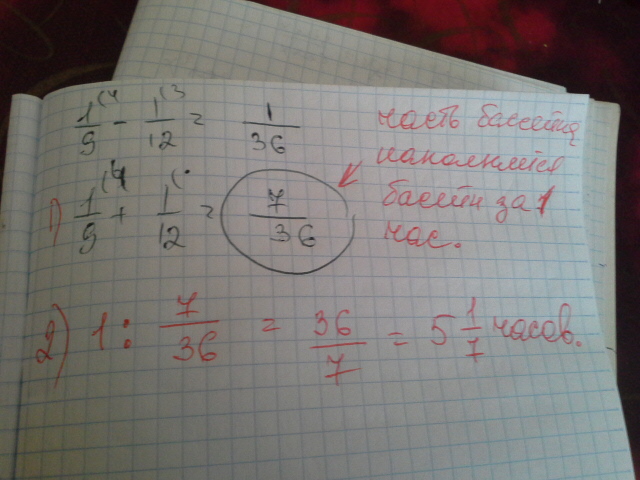 1/9 (4 - 1/12 (3 = 1/36
1) 1/9 (4 + 1/12 ( = 7/36
часть бассейна
наполнится
бассейн за 1
час.
2) 1 : 7/36 = 36/7 = 5 1/7 часов.